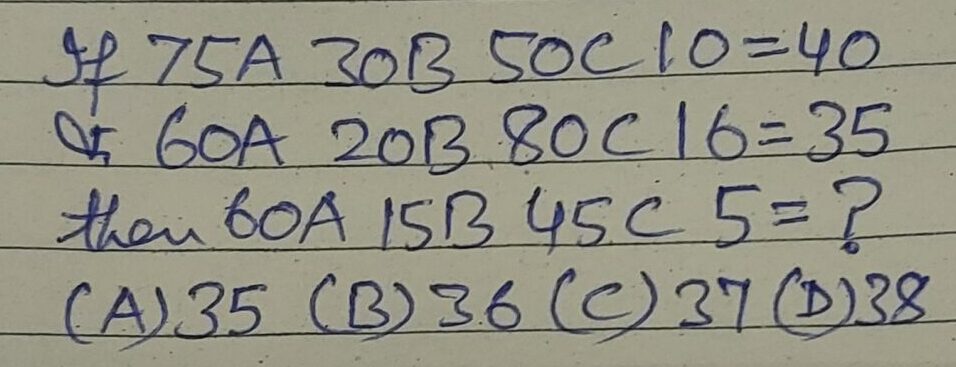 If 75A 30B 50C 10=40
& 60A 20B 80C 16=35
then 60A 15B 45C 5=?
(A)35 (B)36 (C)37 (D)38